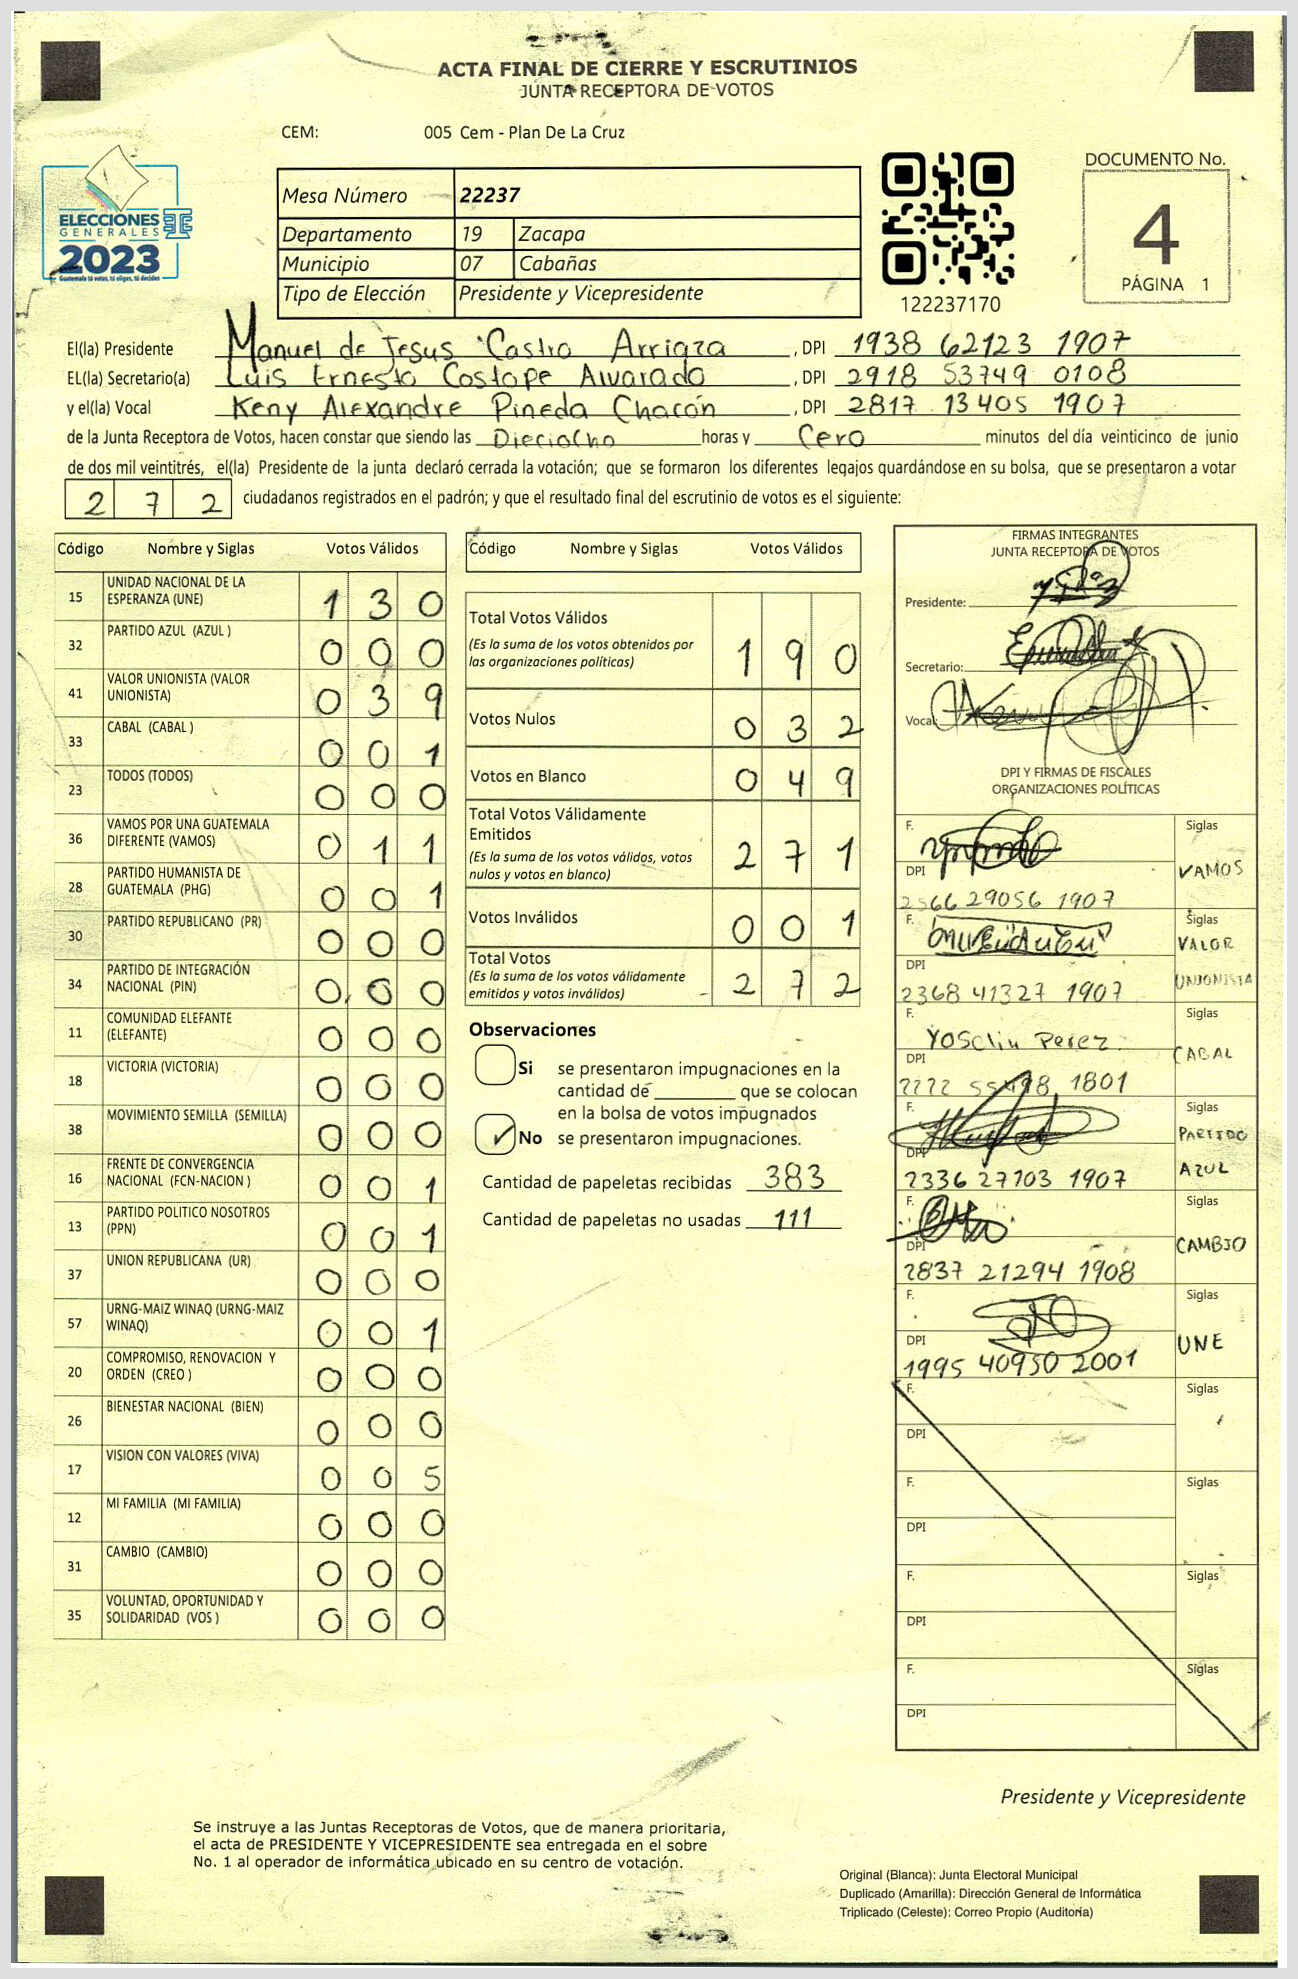 ACTA FINAL DE CIERRE Y ESCRUTINIOS
JUNTA RECEPTORA DE VOTOS
CEM: 005 Cem - Plan De La Cruz
ELECCIONES
GENERALES
2023
Guatemala tú votas, tú eliges, tú decides
Mesa Número 22237
Departamento 19 Zacapa
Municipio 07 Cabañas
Tipo de Elección Presidente y Vicepresidente
122237170
DOCUMENTO No.
4
PÁGINA 1
El(la) Presidente Manuel de Jesus Castro Arriaza , DPI 1938 62123 1907
EL(la) Secretario(a) Luis Ernesto Costope Alvarado , DPI 2918 53749 0108
y el(la) Vocal Keny Alexandre Pineda Chacón , DPI 2817 13405 1907
de la Junta Receptora de Votos, hacen constar que siendo las Dieciocho horas y Cero minutos del día veinticinco de junio
de dos mil veintitrés, el(la) Presidente de la junta declaró cerrada la votación; que se formaron los diferentes legajos quardándose en su bolsa, que se presentaron a votar
2 7 2 ciudadanos registrados en el padrón; y que el resultado final del escrutinio de votos es el siguiente:
Código Nombre y Siglas Votos Válidos
15 UNIDAD NACIONAL DE LA ESPERANZA (UNE) 1 3 0
32 PARTIDO AZUL (AZUL ) 0 0 0
41 VALOR UNIONISTA (VALOR UNIONISTA) 0 3 9
33 CABAL (CABAL ) 0 0 1
23 TODOS (TODOS) 0 0 0
36 VAMOS POR UNA GUATEMALA DIFERENTE (VAMOS) 0 1 1
28 PARTIDO HUMANISTA DE GUATEMALA (PHG) 0 0 1
30 PARTIDO REPUBLICANO (PR) 0 0 0
34 PARTIDO DE INTEGRACIÓN NACIONAL (PIN) 0 0 0
11 COMUNIDAD ELEFANTE (ELEFANTE) 0 0 0
18 VICTORIA (VICTORIA) 0 0 0
38 MOVIMIENTO SEMILLA (SEMILLA) 0 0 0
16 FRENTE DE CONVERGENCIA NACIONAL (FCN-NACION ) 0 0 1
13 PARTIDO POLITICO NOSOTROS (PPN) 0 0 1
37 UNION REPUBLICANA (UR) 0 0 0
57 URNG-MAIZ WINAQ (URNG-MAIZ WINAQ) 0 0 1
20 COMPROMISO, RENOVACION Y ORDEN (CREO ) 0 0 0
26 BIENESTAR NACIONAL (BIEN) 0 0 0
17 VISION CON VALORES (VIVA) 0 0 5
12 MI FAMILIA (MI FAMILIA) 0 0 0
31 CAMBIO (CAMBIO) 0 0 0
35 VOLUNTAD, OPORTUNIDAD Y SOLIDARIDAD (VOS ) 0 0 0
Código Nombre y Siglas Votos Válidos
Total Votos Válidos 1 9 0
(Es la suma de los votos obtenidos por
las organizaciones políticas)
Votos Nulos 0 3 2
Votos en Blanco 0 4 9
Total Votos Válidamente
Emitidos 2 7 1
(Es la suma de los votos válidos, votos
nulos y votos en blanco)
Votos Inválidos 0 0 1
Total Votos
(Es la suma de los votos válidamente
emitidos y votos inválidos) 2 7 2
Observaciones
Si se presentaron impugnaciones en la
cantidad de que se colocan
en la bolsa de votos impugnados
✓ No se presentaron impugnaciones.
Cantidad de papeletas recibidas 383
Cantidad de papeletas no usadas 111
FIRMAS INTEGRANTES
JUNTA RECEPTORA DE VOTOS
Presidente:
Secretario:
Vocal:
DPI Y FIRMAS DE FISCALES
ORGANIZACIONES POLÍTICAS
F. Siglas
DPI VAMOS
2566 29056 1907
F. Siglas
VALOR
DPI UNIONISTA
2368 41327 1907
F. Siglas
Yoselin Perez
DPI CABAL
1801
F. Siglas
PARTIDO
DPI AZUL
2336 27703 1907
F. Siglas
DPI CAMBIO
2837 21294 1908
F. Siglas
DPI UNE
1995 40950 2001
F. Siglas
DPI
F. Siglas
DPI
F. Siglas
DPI
F. Siglas
DPI
Presidente y Vicepresidente
Se instruye a las Juntas Receptoras de Votos, que de manera prioritaria,
el acta de PRESIDENTE Y VICEPRESIDENTE sea entregada en el sobre
No. 1 al operador de informática ubicado en su centro de votación.
Original (Blanca): Junta Electoral Municipal
Duplicado (Amarilla): Dirección General de Informática
Triplicado (Celeste): Correo Propio (Auditoria)